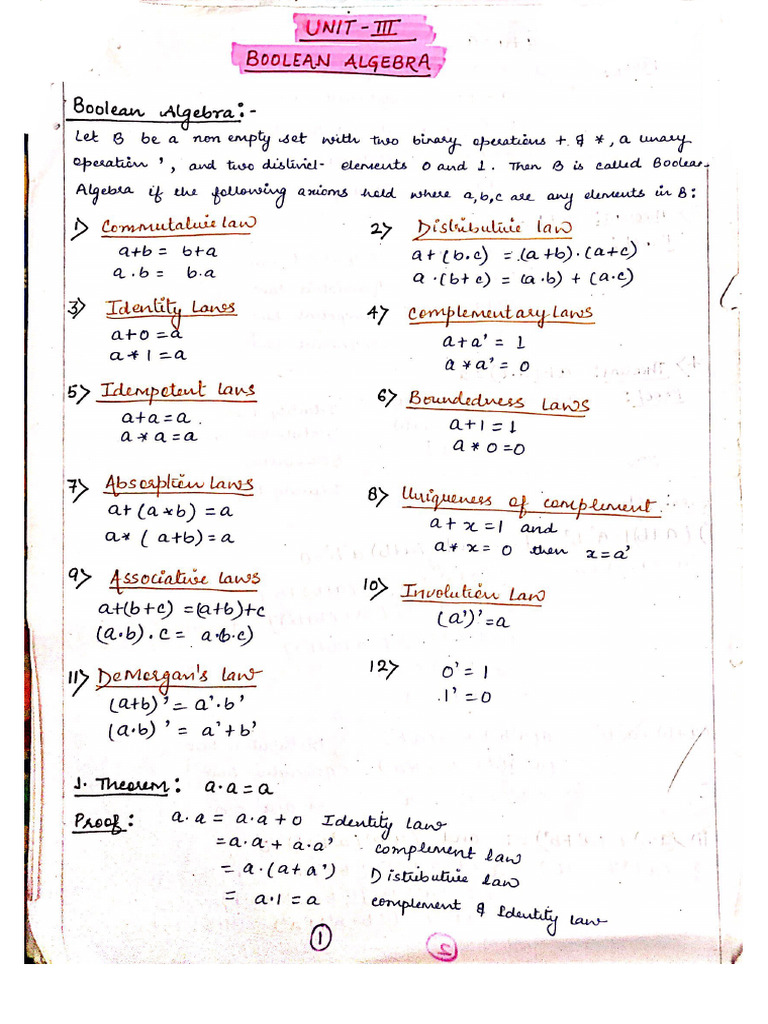 UNIT-III
BOOLEAN ALGEBRA
Boolean Algebra:-
Let B be a non empty set with two binary operations + & *, a unary
operation ', and two distinct elements 0 and 1. Then B is called Boolean
Algebra if the following axioms hold where a,b,c are any elements in B:
1) Commutative law
a+b = b+a
a·b = b·a
2) Distributive law
a+(b·c) = (a+b)·(a+c)
a·(b+c) = (a·b) + (a·c)
3) Identity Laws
a+0 = a
a*1 = a
4) Complementary Laws
a+a' = 1
a*a' = 0
5) Idempotent laws
a+a = a.
a*a = a
6) Boundedness Laws
a+1 = 1
a*0 = 0
7) Absorption laws
a+(a*b) = a
a*(a+b) = a
8) Uniqueness of complement
a+x = 1 and
a*x = 0 then x = a'
9) Associative laws
a+(b+c) = (a+b)+c
(a·b).c = a·b·c)
10) Involution Law
(a')' = a
11) DeMorgan's law
(a+b)' = a'·b'
(a·b)' = a'+b'
12) 0' = 1
1' = 0
1. Theorem: a·a = a
Proof: a·a = a·a+0 Identity Law
= a·a + a·a' complement law
= a·(a+a') Distributive law
= a·1 = a complement & Identity law
1